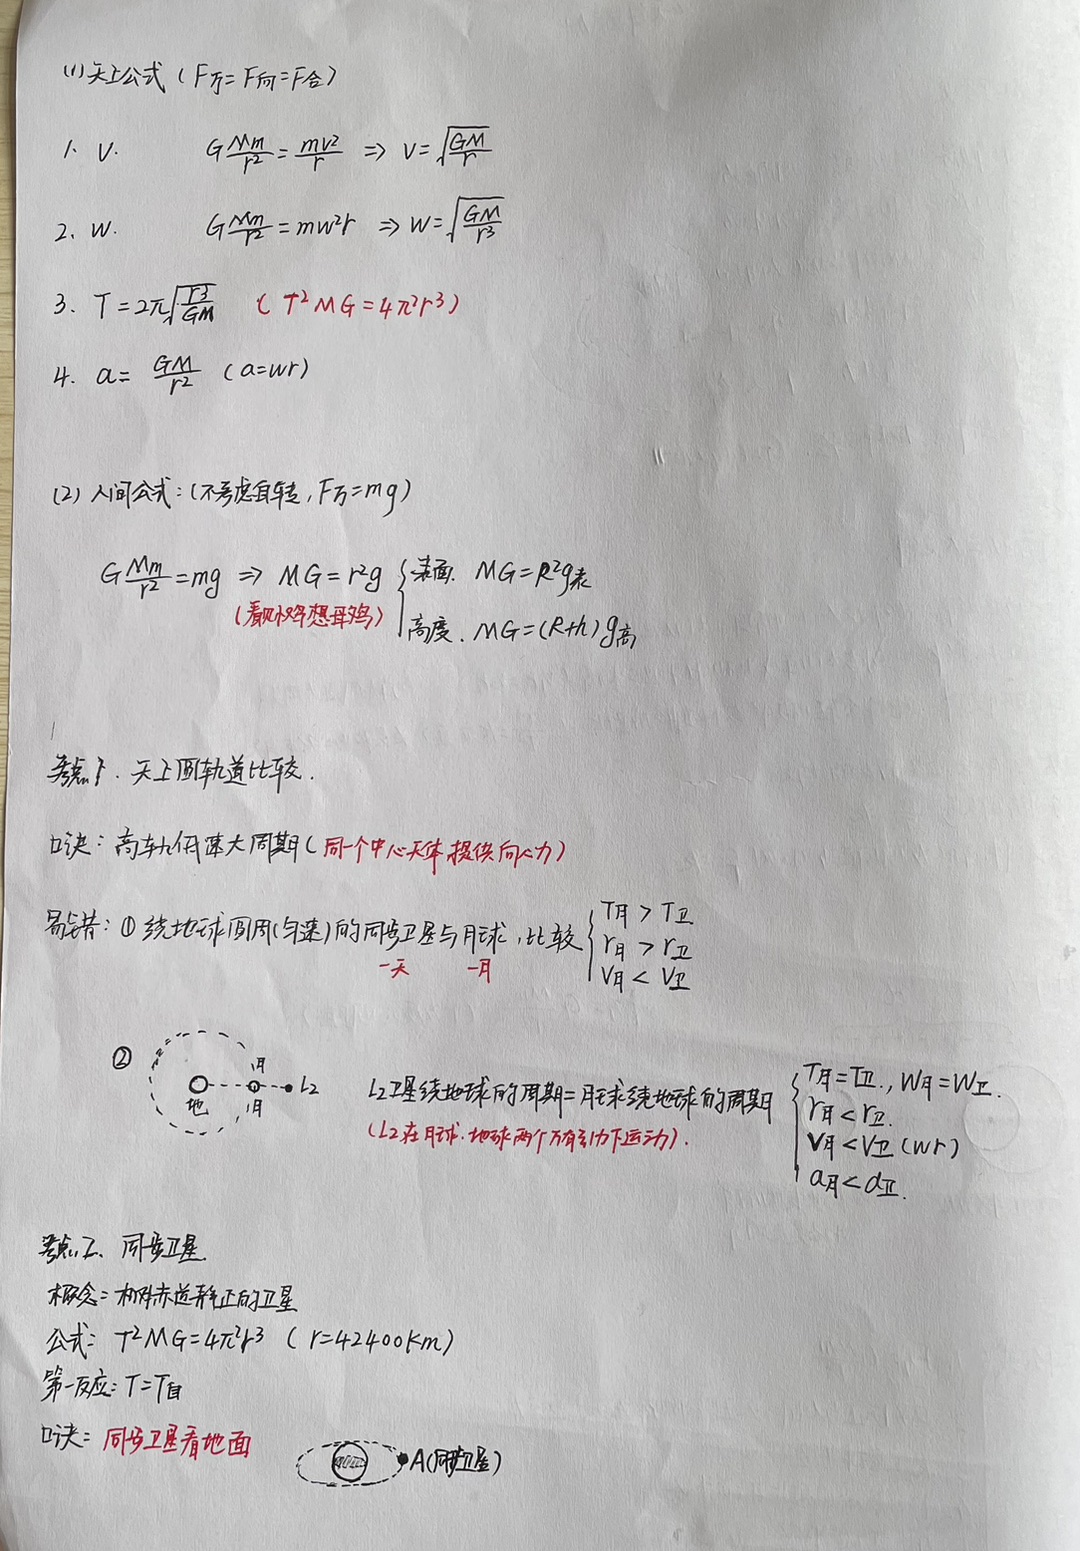 (1) 天上公式 (F万=F向=F合)
1. V. G Mm/r² = mv²/r ⇒ V=√(GM/r)
2. W. G Mm/r² = mw²r ⇒ W=√(GM/r³)
3. T=2π√(r³/GM) (T²MG=4π²r³)
4. a= GM/r² (a=wr)
(2) 人间公式:(不考虑自转, F万=mg)
G Mm/r² =mg ⇒ MG=r²g { 表面. MG=R²g表
(看见小鸡想母鸡)
高度. MG=(R+h) g高
考点1. 天上圆轨道比较.
口诀: 高轨低速大周期(同一个中心天体提供向心力)
易错: ① 绕地球圆周(匀速)的同步卫星与月球, 比较 { T月 > T卫
r月 > r卫
V月 < V卫
一天 一月
②
地 月 月 L2
L2卫星绕地球的周期=月球绕地球的周期 { T月=T卫., W月=W卫.
(L2在月球.地球两个万有引力下运动).
r月<r卫.
V月<V卫 (wr)
a月<a卫.
考点2. 同步卫星.
概念: 相对赤道静止的卫星
公式: T²MG=4π²r³ (r=42400km)
第一反应: T=T自
口诀: 同步卫星看地面
A(同步卫星)